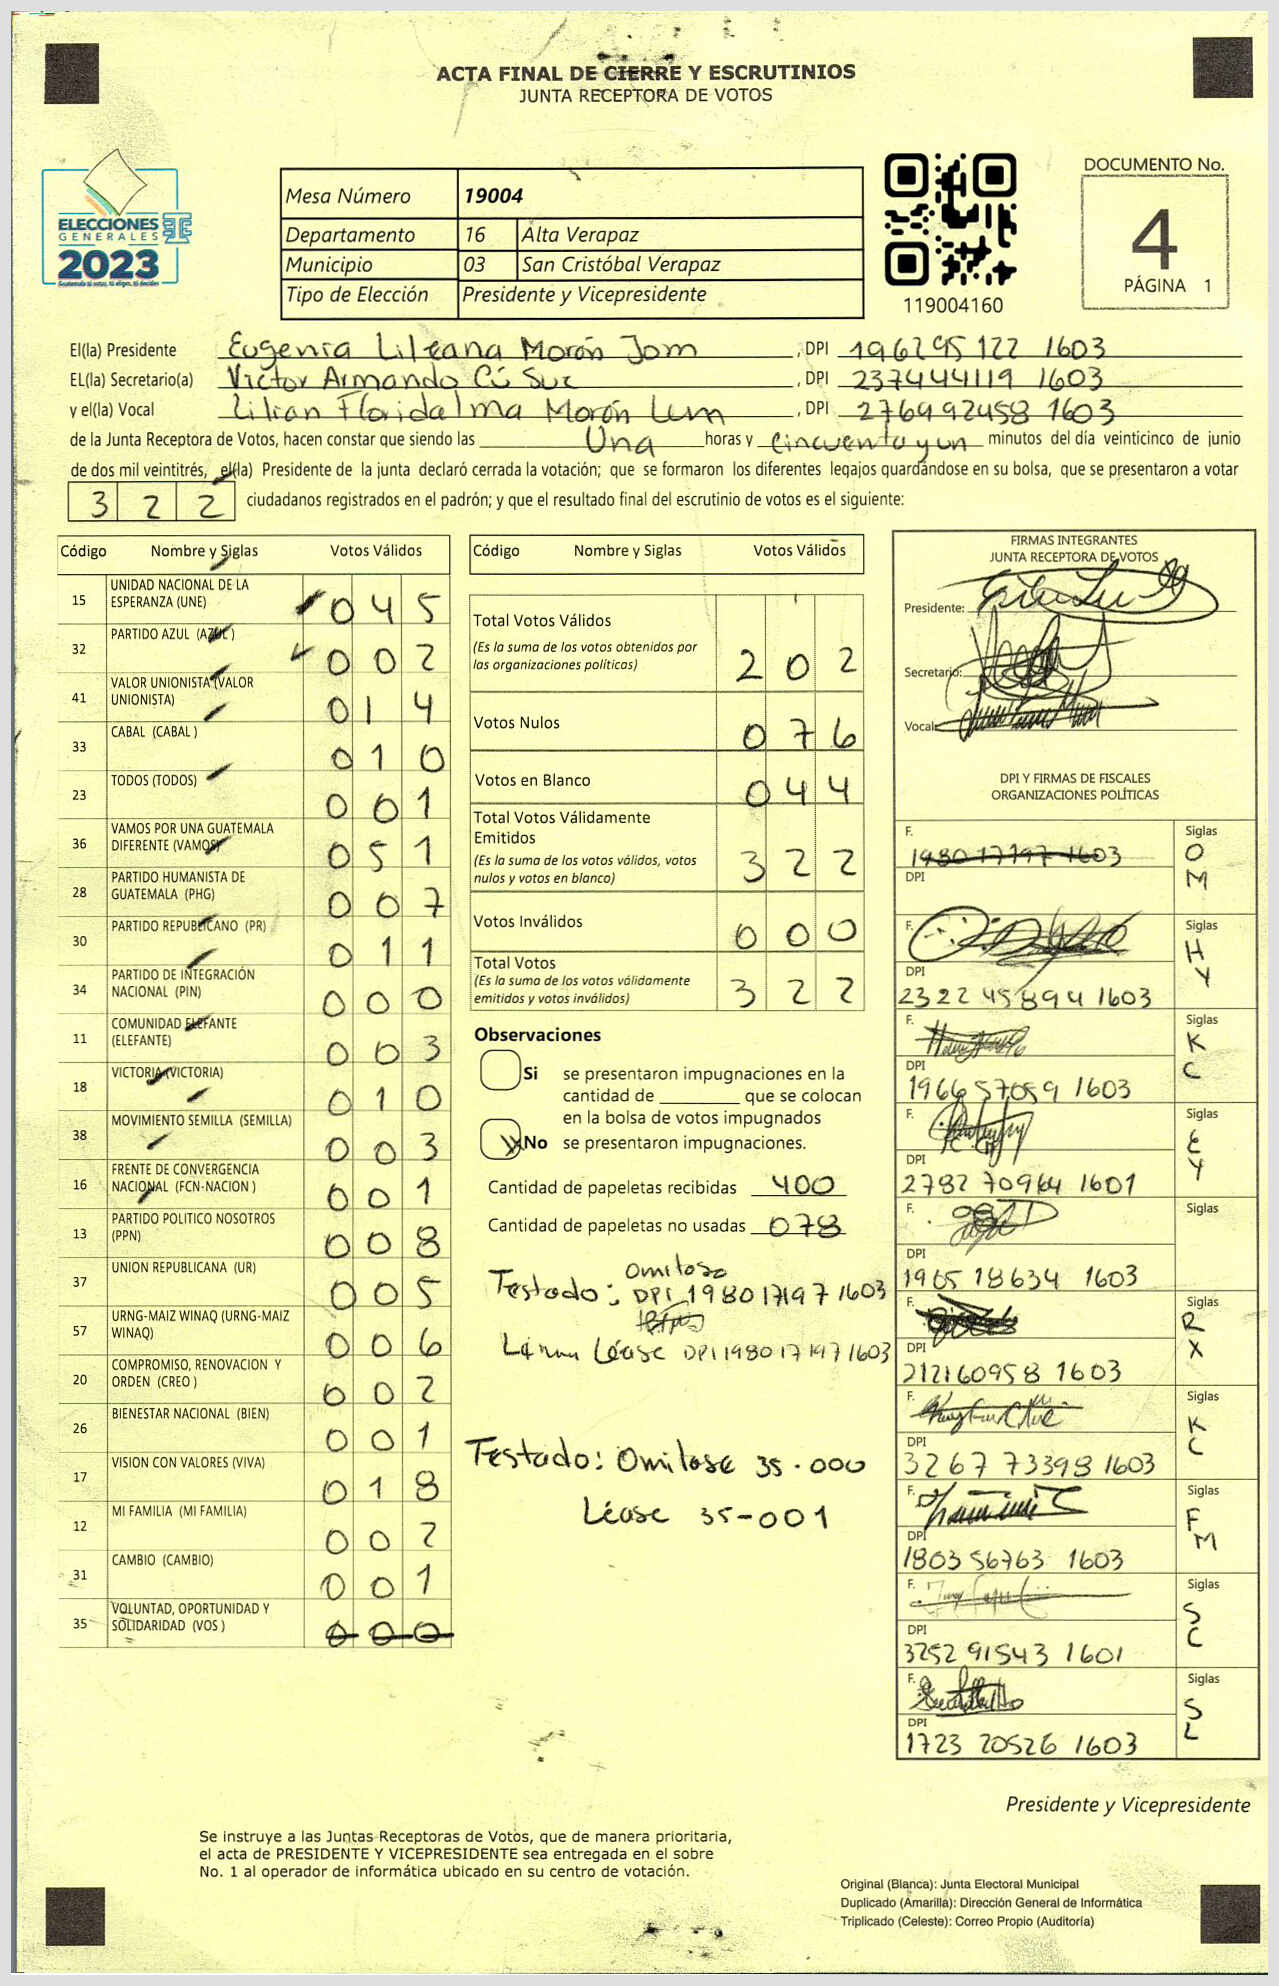 ACTA FINAL DE CIERRE Y ESCRUTINIOS
JUNTA RECEPTORA DE VOTOS
ELECCIONES
GENERALES
2023
Guatemala tú votas, tú eliges, tú decides
Mesa Número 19004
Departamento 16 Alta Verapaz
Municipio 03 San Cristóbal Verapaz
Tipo de Elección Presidente y Vicepresidente
119004160
DOCUMENTO No.
4
PÁGINA 1
El(la) Presidente Eugenia Lileana Morán Jom, DPI 196295122 1603
EL(la) Secretario(a) Victor Armando Cú Suc, DPI 237444119 1603
y el(la) Vocal Lilian Floridalma Morán Lem, DPI 276992458 1603
de la Junta Receptora de Votos, hacen constar que siendo las Una horas y cincuenta y un minutos del día veinticinco de junio
de dos mil veintitrés, el(la) Presidente de la junta declaró cerrada la votación; que se formaron los diferentes legajos guardándose en su bolsa, que se presentaron a votar
322 ciudadanos registrados en el padrón; y que el resultado final del escrutinio de votos es el siguiente:
Código Nombre y Siglas Votos Válidos
15 UNIDAD NACIONAL DE LA ESPERANZA (UNE) 045
32 PARTIDO AZUL (AZUL) 002
41 VALOR UNIONISTA (VALOR UNIONISTA) 014
33 CABAL (CABAL) 010
23 TODOS (TODOS) 001
36 VAMOS POR UNA GUATEMALA DIFERENTE (VAMOS) 051
28 PARTIDO HUMANISTA DE GUATEMALA (PHG) 007
30 PARTIDO REPUBLICANO (PR) 011
34 PARTIDO DE INTEGRACIÓN NACIONAL (PIN) 000
11 COMUNIDAD ELEFANTE (ELEFANTE) 003
18 VICTORIA (VICTORIA) 010
38 MOVIMIENTO SEMILLA (SEMILLA) 003
16 FRENTE DE CONVERGENCIA NACIONAL (FCN-NACION) 001
13 PARTIDO POLITICO NOSOTROS (PPN) 008
37 UNION REPUBLICANA (UR) 005
57 URNG-MAIZ WINAQ (URNG-MAIZ WINAQ) 006
20 COMPROMISO, RENOVACION Y ORDEN (CREO) 002
26 BIENESTAR NACIONAL (BIEN) 001
17 VISION CON VALORES (VIVA) 018
12 MI FAMILIA (MI FAMILIA) 002
31 CAMBIO (CAMBIO) 001
35 VOLUNTAD, OPORTUNIDAD Y SOLIDARIDAD (VOS) 000
Código Nombre y Siglas Votos Válidos
Total Votos Válidos
(Es la suma de los votos obtenidos por
las organizaciones políticas) 202
Votos Nulos 076
Votos en Blanco 044
Total Votos Válidamente
Emitidos
(Es la suma de los votos válidos, votos
nulos y votos en blanco) 322
Votos Inválidos 000
Total Votos
(Es la suma de los votos válidamente
emitidos y votos inválidos) 322
Observaciones
Si se presentaron impugnaciones en la
cantidad de ________ que se colocan
en la bolsa de votos impugnados
X No se presentaron impugnaciones.
Cantidad de papeletas recibidas 400
Cantidad de papeletas no usadas 078
Testado: Omitase
DPI 1980 17197 1603
Léase DPI 1980 17197 1603
Testado: Omitase 35-000
Léase 35-001
FIRMAS INTEGRANTES
JUNTA RECEPTORA DE VOTOS
Presidente:
Secretario:
Vocal:
DPI Y FIRMAS DE FISCALES
ORGANIZACIONES POLÍTICAS
F. 1980 17197 1603 Siglas OM
DPI
F. Siglas HY
DPI 2322 45894 1603
F. Siglas KC
DPI 1966 57059 1603
F. Siglas EY
DPI 2782 70964 1601
F. Siglas
DPI 1965 18634 1603
F. Siglas RX
DPI 212160958 1603
F. Siglas KC
DPI 3267 73398 1603
F. Siglas FM
DPI 1803 56763 1603
F. Siglas SC
DPI 3252 91543 1601
F. Siglas SL
DPI 1723 20526 1603
Presidente y Vicepresidente
Se instruye a las Juntas Receptoras de Votos, que de manera prioritaria,
el acta de PRESIDENTE Y VICEPRESIDENTE sea entregada en el sobre
No. 1 al operador de informática ubicado en su centro de votación.
Original (Blanca): Junta Electoral Municipal
Duplicado (Amarilla): Dirección General de Informática
Triplicado (Celeste): Correo Propio (Auditoría)